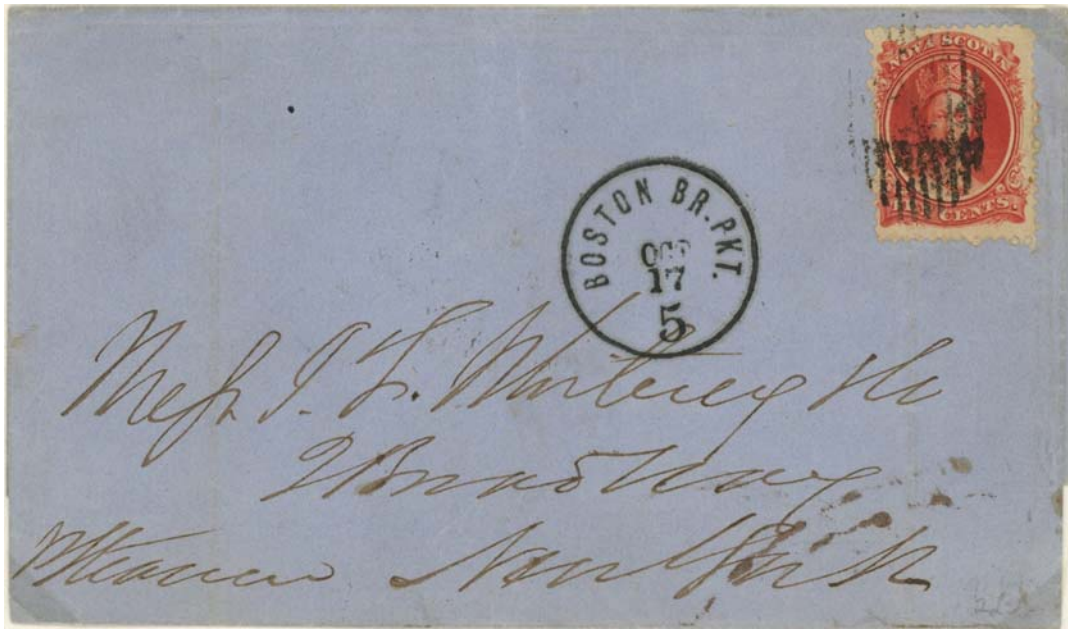 NOVA SCOTIA
CENTS.
BOSTON BR. PKT.
OCT
17
5
Mess J. F. Whitney & Co
Broadway
New York